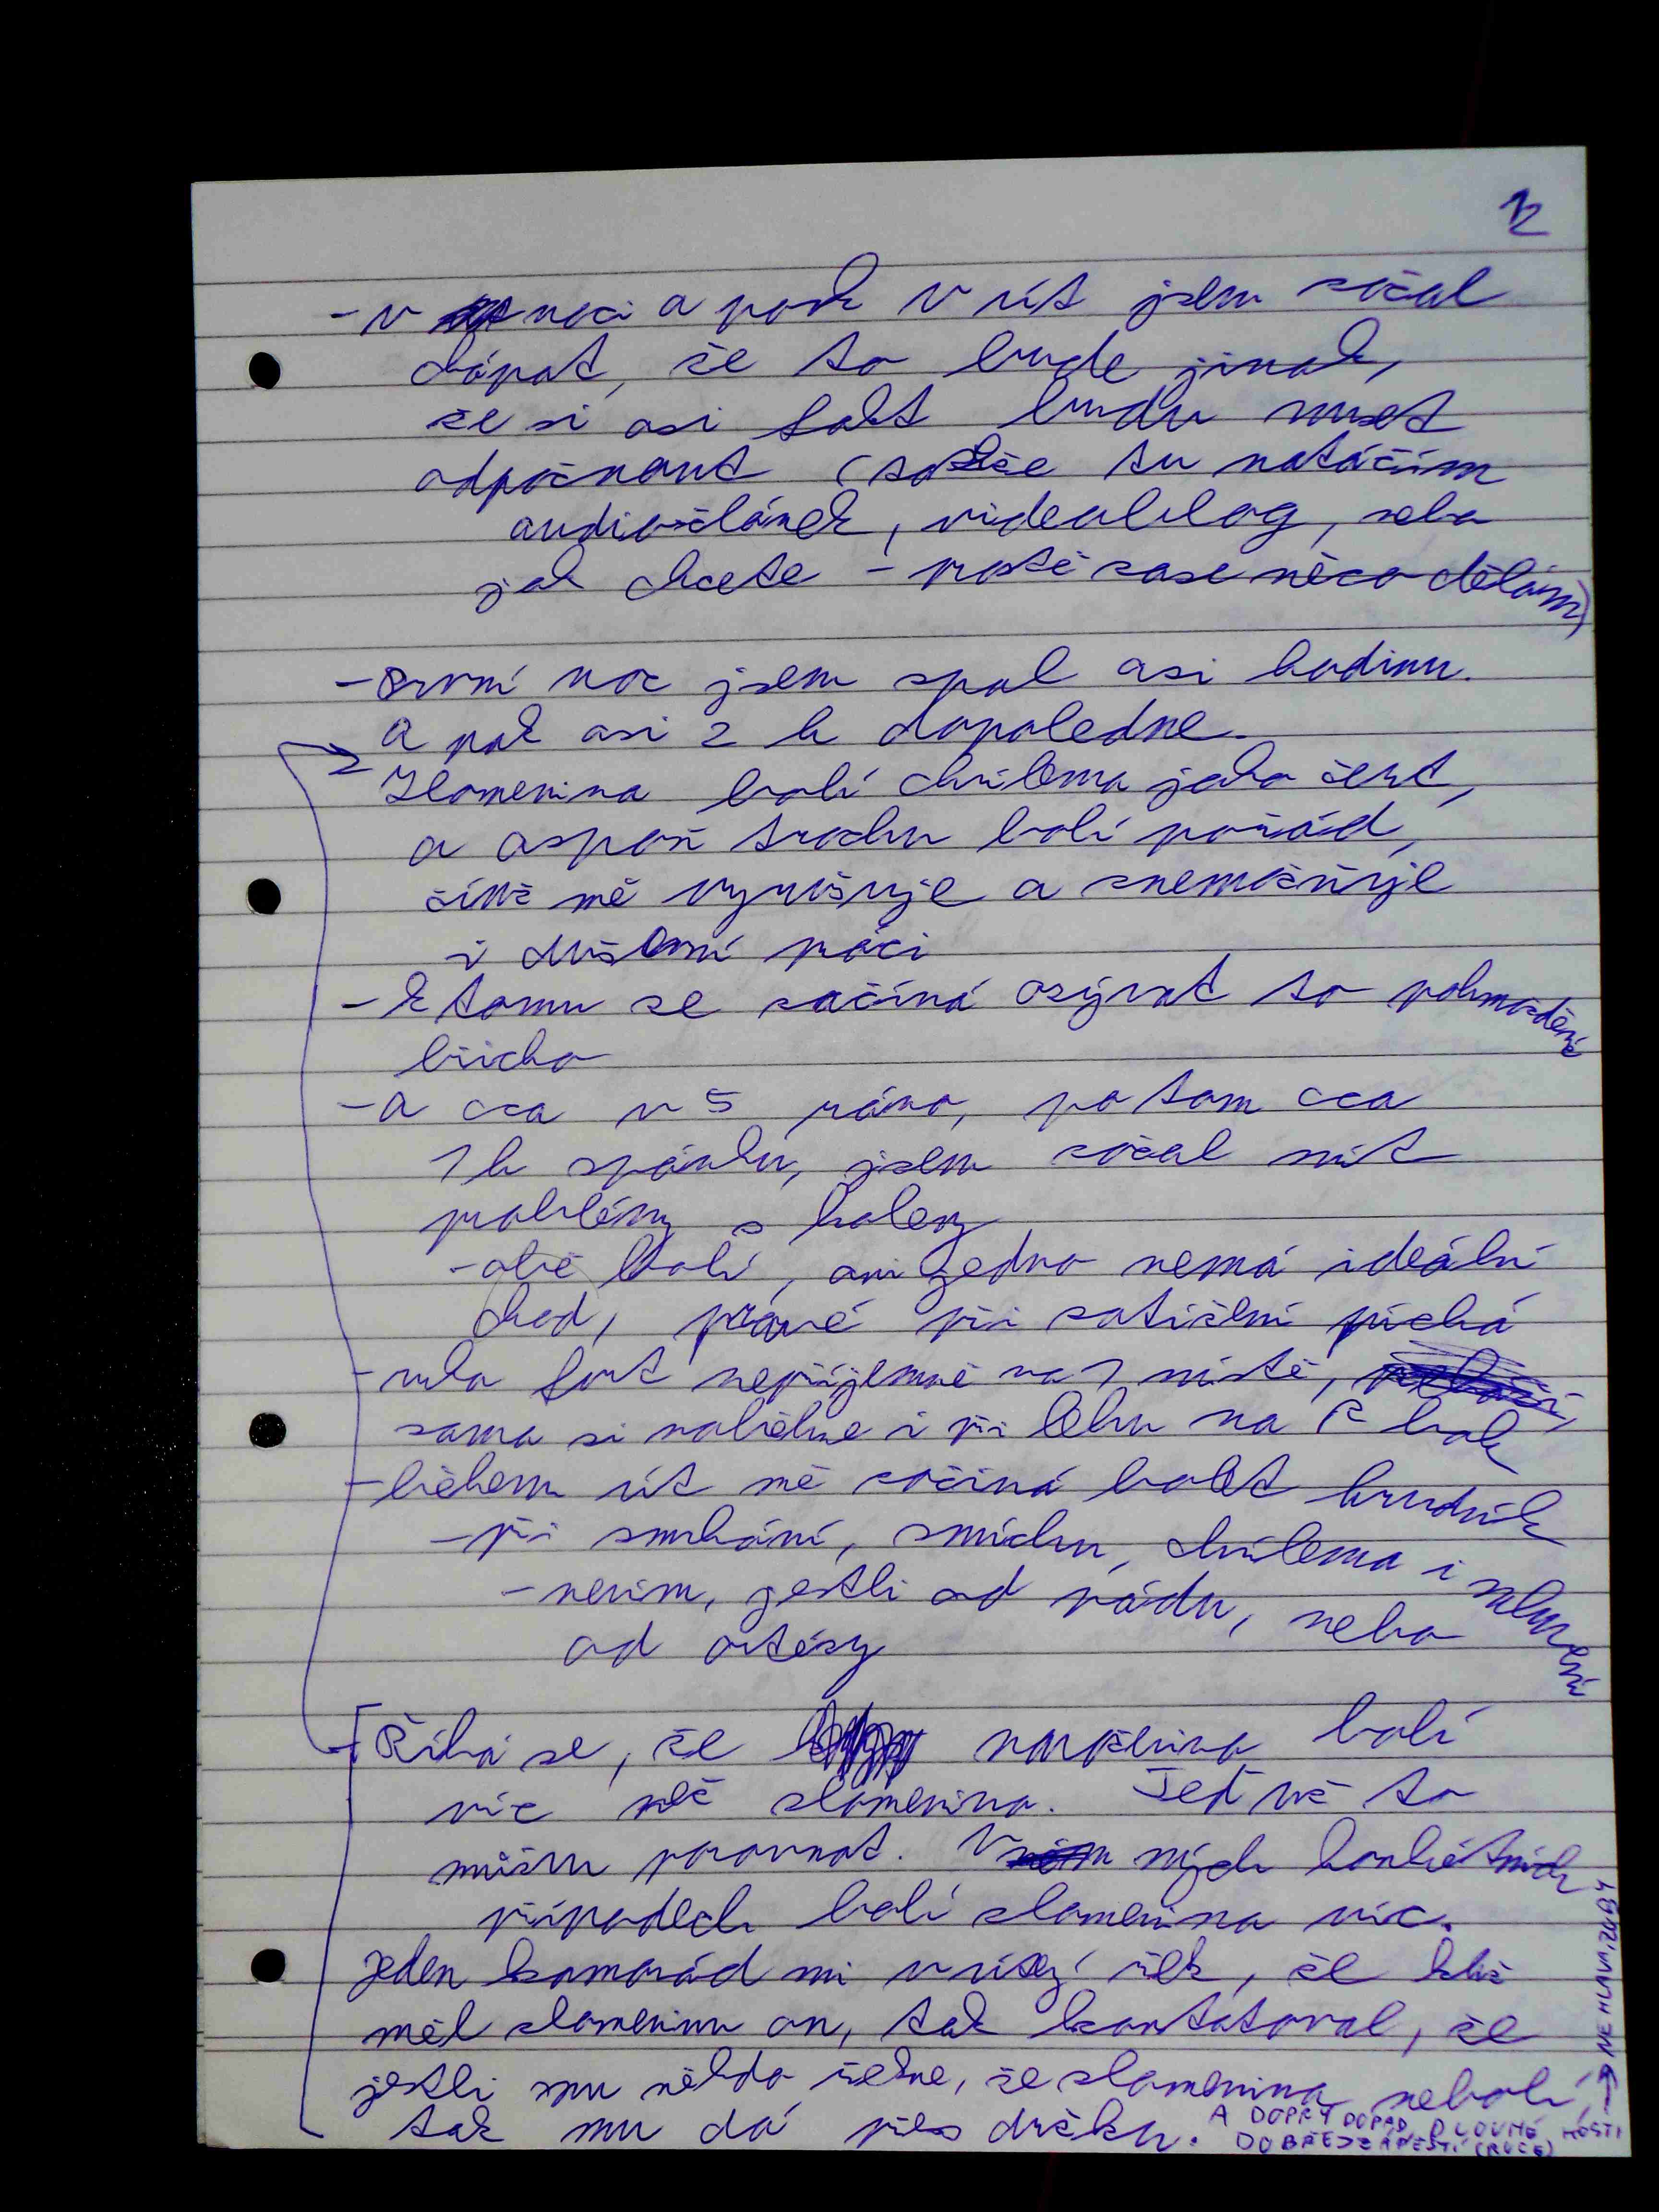 2
- v noci a pak v út jsem začal
chápat, že to bude jinak,
že si asi fakt budu muset
odpočnout (takže tu natáčím
audiočlánek, videoblog, nebo
jak chcete - prostě zase něco dělám)
- První noc jsem spal asi hodinu.
a pak asi 2 h dopoledne.
Zlomenina bolí chvílema jako čert,
a aspoň trochu bolí pořád,
čímž mě vyrušuje a znemožňuje
i duševní práci
- k tomu se začíná ozývat to pohmožděné
břicho
- a cca v 5 ráno, po tom cca
1 h spánku, jsem začal mít
problémy s koleny
- obě bolí, ani jedno nemá ideální
chod, pravé při zatížení píchá
- ruka furt nepříjemně na 1 místě,
sama si nalehne i při lehu na P bok
- během út mě začíná bolet hrudník
- při smrkání, smíchu, chvílema i mluvení
- nevim, jestli od pádu, nebo
od ortézy
Říká se, že naraženina bolí
víc než zlomenina. Teď už to
můžu porovnat. V mých konkrétních
případech bolí zlomenina víc.
Jeden kamarád mi v úterý řek, že když
měl zlomeninu on, tak konstatoval, že
jestli mu někdo řekne, že zlomenina nebolí,
tak mu dá přes držku.
A DOPRÝ DOPAD DLOUHÉ KOSTI
DOBŘE (RUCE)
→ NE HLAVNI, ZUBY